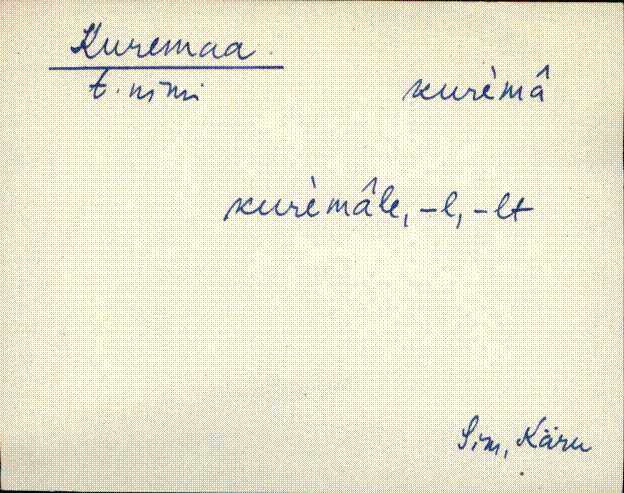 Kuremaa
t. nimi kurèmâ
kurèmâle, -l, -lt
Sim, Käru